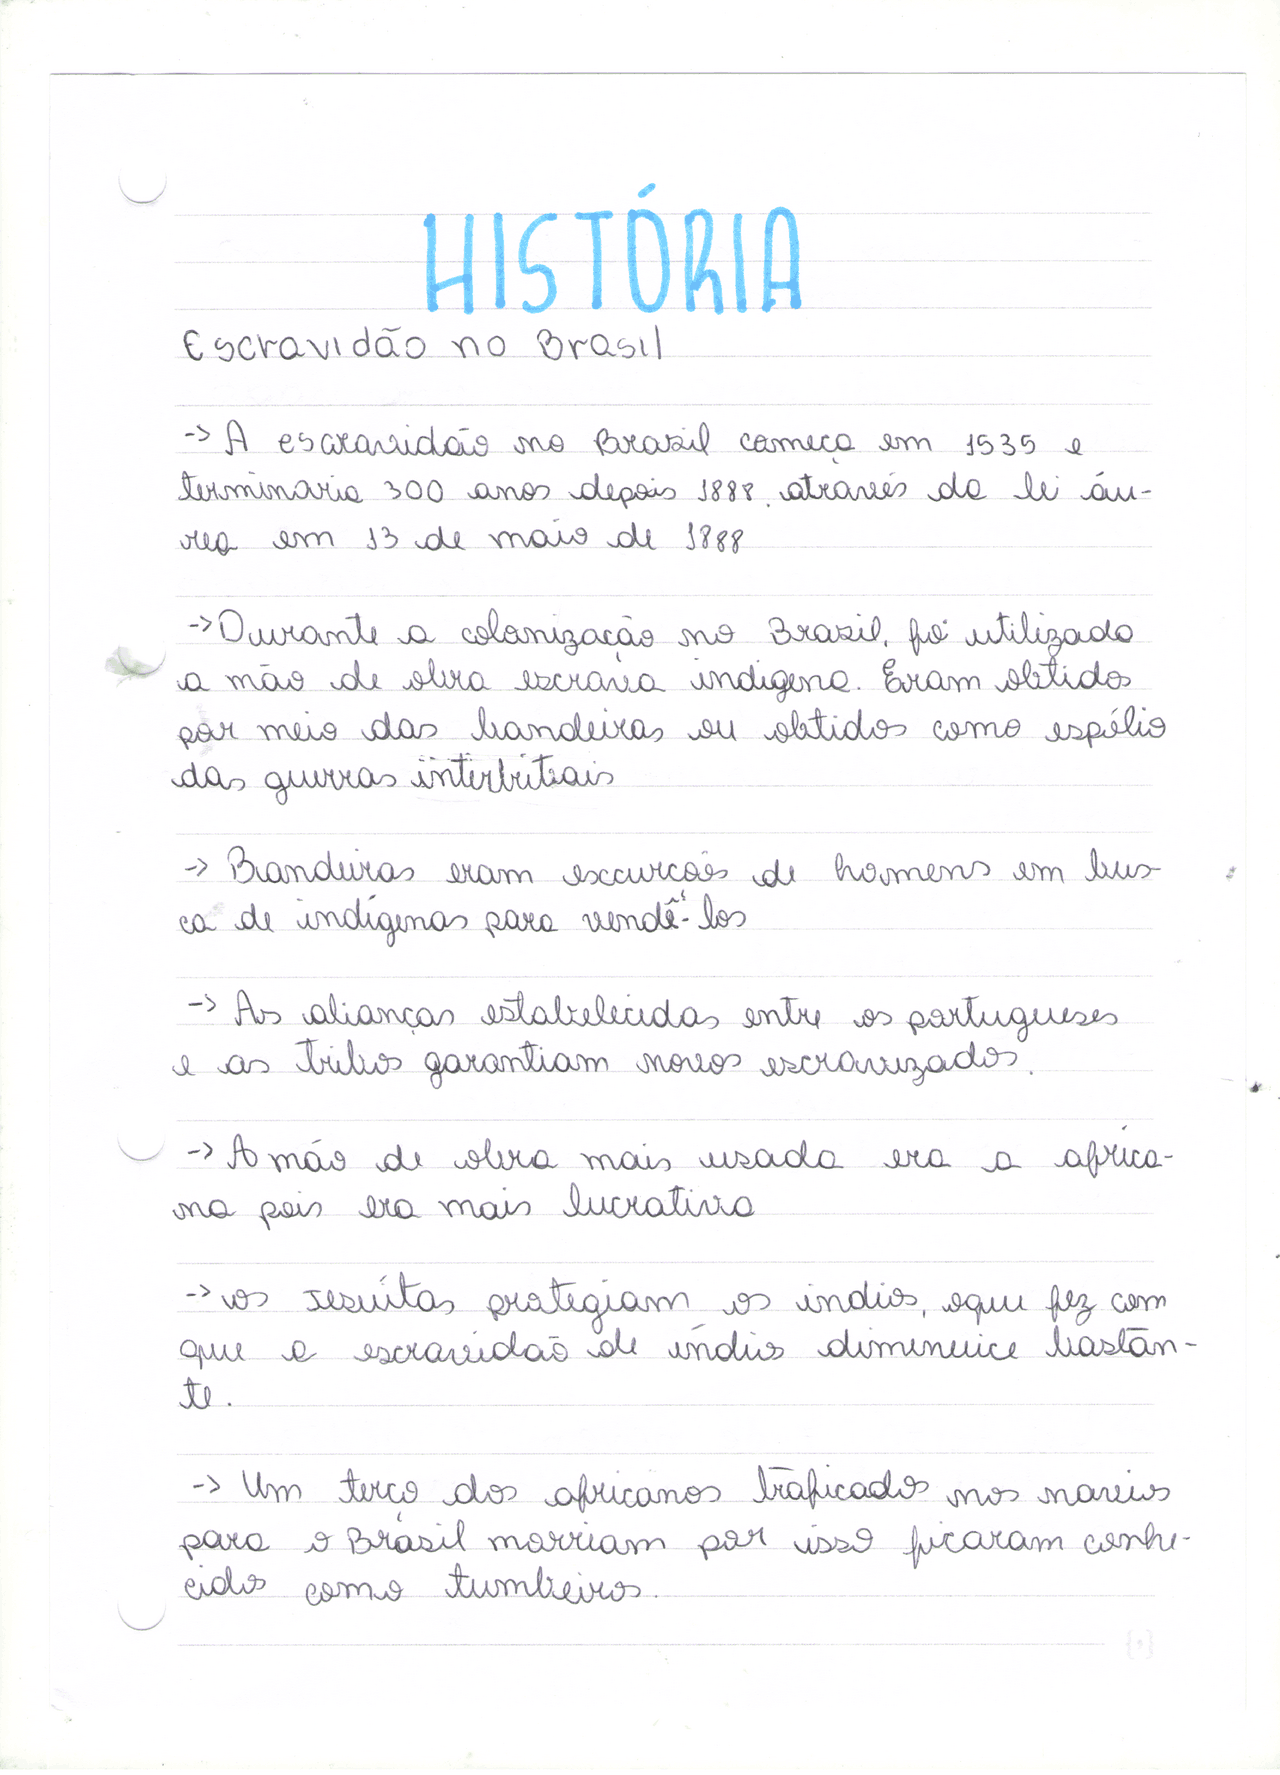 HISTÓRIA
Escravidão no Brasil
-> A escravidão no Brasil começa em 1535 e
terminaria 300 anos depois 1888, através da lei áu-
rea em 13 de maio de 1888
-> Durante a colonização no Brasil, foi utilizado
a mão de obra escrava indigena. Eram obtidos
por meio das bandeiras ou obtidos como espólio
das guerras intertribais
-> Bandeiras eram excurções de homens em bus-
ca de indígenas para vendê-los
-> As alianças estabelecidas entre os portugueses
e as tribos garantiam novos escravizados.
-> A mão de obra mais usada era a africa-
na pois era mais lucrativa
-> os jesuítas protegiam os índios, oque fez com
que a escravidão de índios diminuice bastan-
te.
-> Um terço dos africanos traficados nos navios
para o Brasil morriam por isso ficaram conhe-
cidos como tumbeiros.